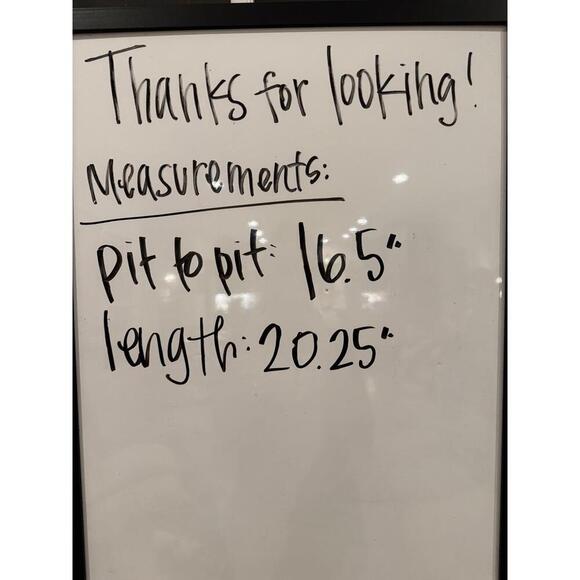 Thanks for looking!
Measurements:
pit to pit: 16.5"
length: 20.25"